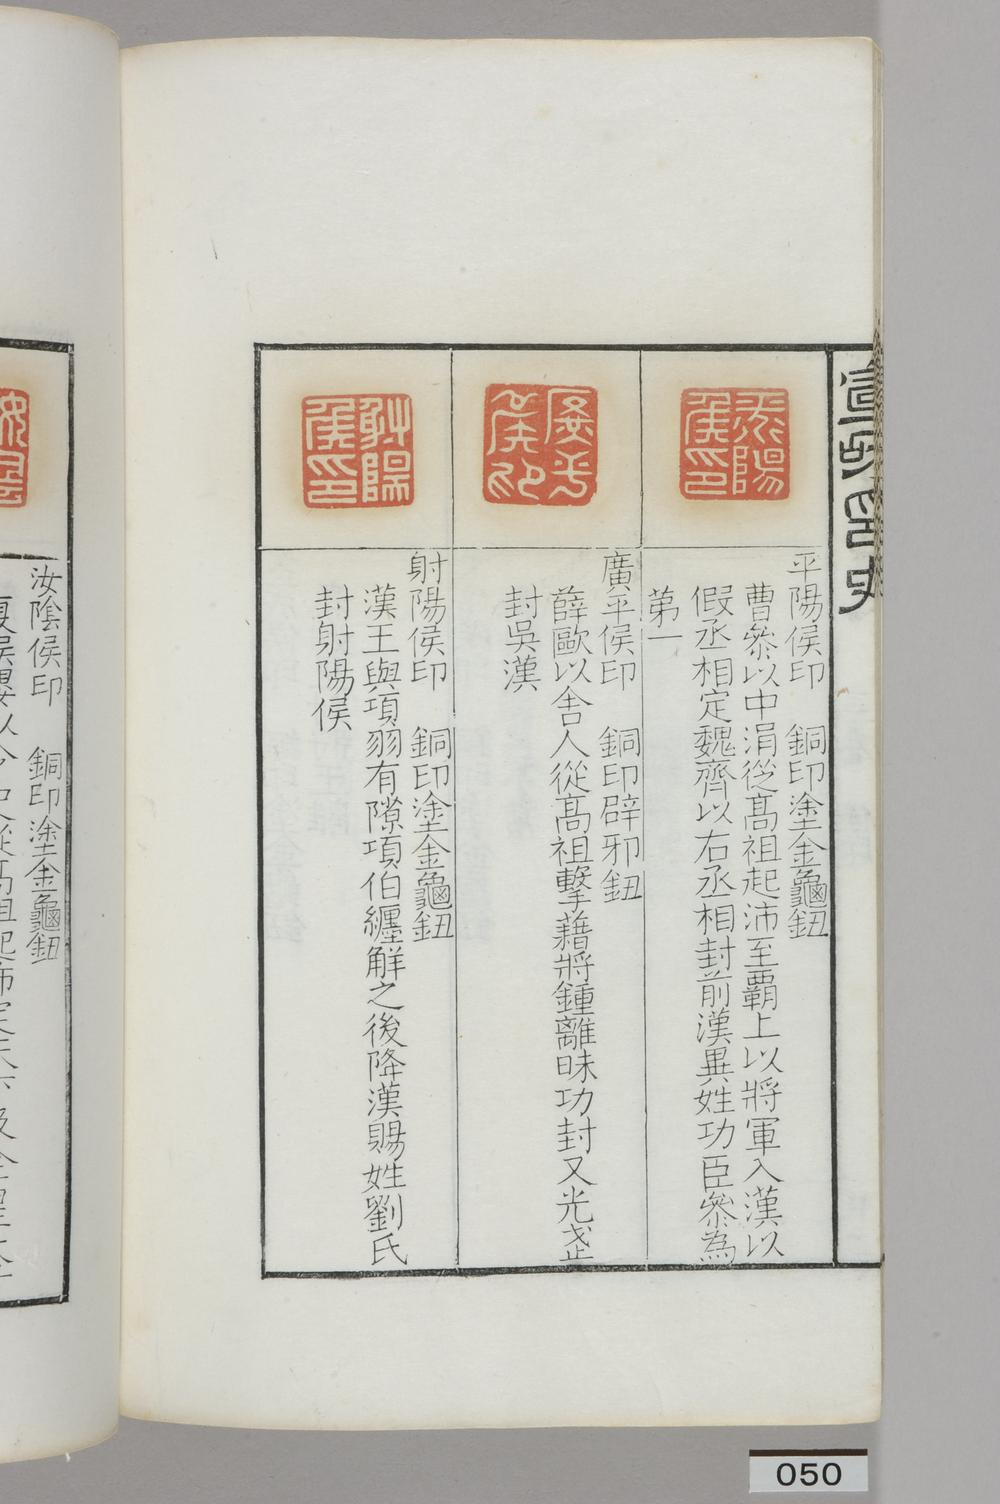 宣和印史
平陽侯印　銅印塗金龜鈕
曹參以中涓從髙祖起沛至覇上以將軍入漢以
假丞相定魏齊以右丞相封前漢異姓功臣參為
第一
廣平侯印　銅印辟邪鈕
薛歐以舍人從髙祖擊藉將鍾離昧功封又光武
封吳漢
射陽侯印　銅印塗金龜鈕
漢王與項羽有隙項伯纏解之後降漢賜姓劉氏
封射陽侯
平陽
侯印
廣平
侯印
射陽
侯印
汝陰侯印　銅印塗金龜鈕
050